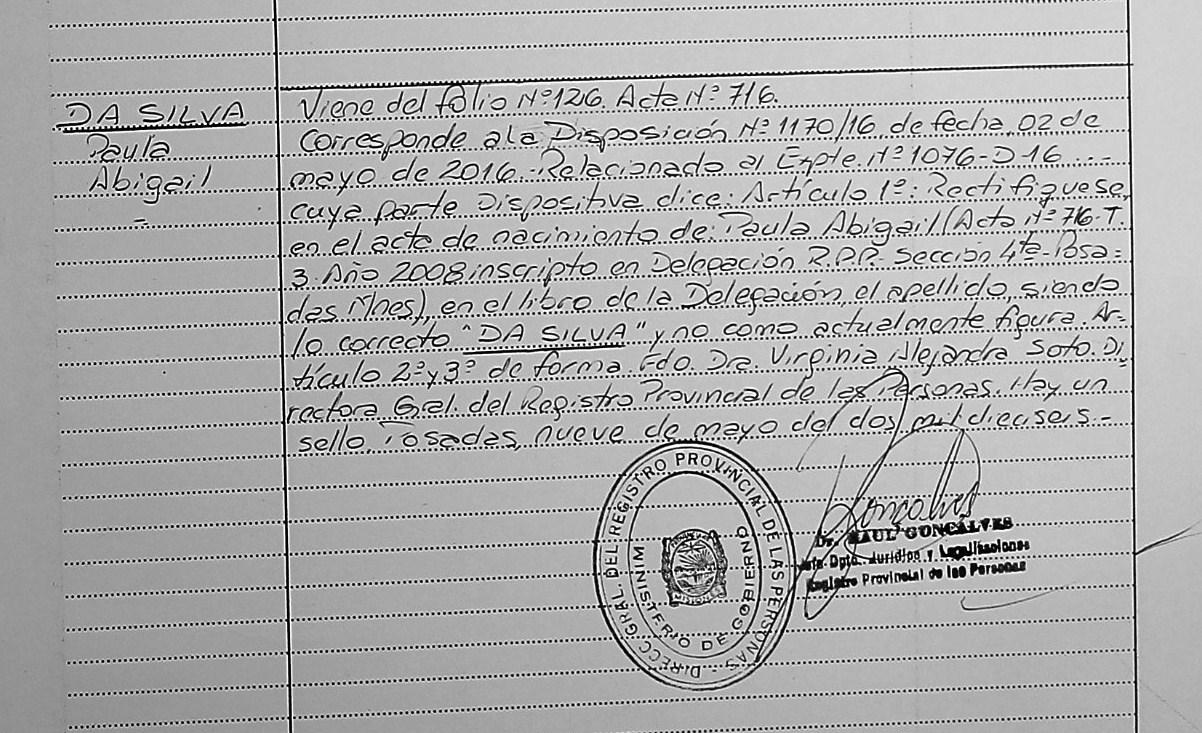 DA SILVA
Paula
Abigail
=
Viene del folio Nº 126. Acta Nº 716.
Corresponde a la Disposición Nº 1170/16 de fecha, 02 de
mayo de 2016.- Relacionada al Expte. Nº 1076-D-16 ----
cuya parte Dispositiva dice: Artículo 1º: Rectifiquese,
en el acta de nacimiento de: Paula Abigail (Acta Nº 716-T.
3. Año 2008 inscripto en Delegación R.P.P. Sección 4ta-Posa=
das Mnes), en el libro de la Delegación, el apellido, siendo
lo correcto "DA SILVA" y no como actualmente figura. Ar-
tículo 2º y 3º de forma Fdo. Dra. Virginia Alejandra Soto. Di-
rectora Gral. del Registro Provincial de las Personas. Hay un
sello. Posadas, nueve de mayo del dos mil dieciseis.-
DIRECC. GRAL. DEL REGISTRO PROVINCIAL DE LAS PERSONAS
MINISTERIO DE GOBIERNO
MISIONES
Gonçalves
Dr. RAUL GONCALVES
Jefe Dpto. Jurídico y Legalizaciones
Registro Provincial de las Personas